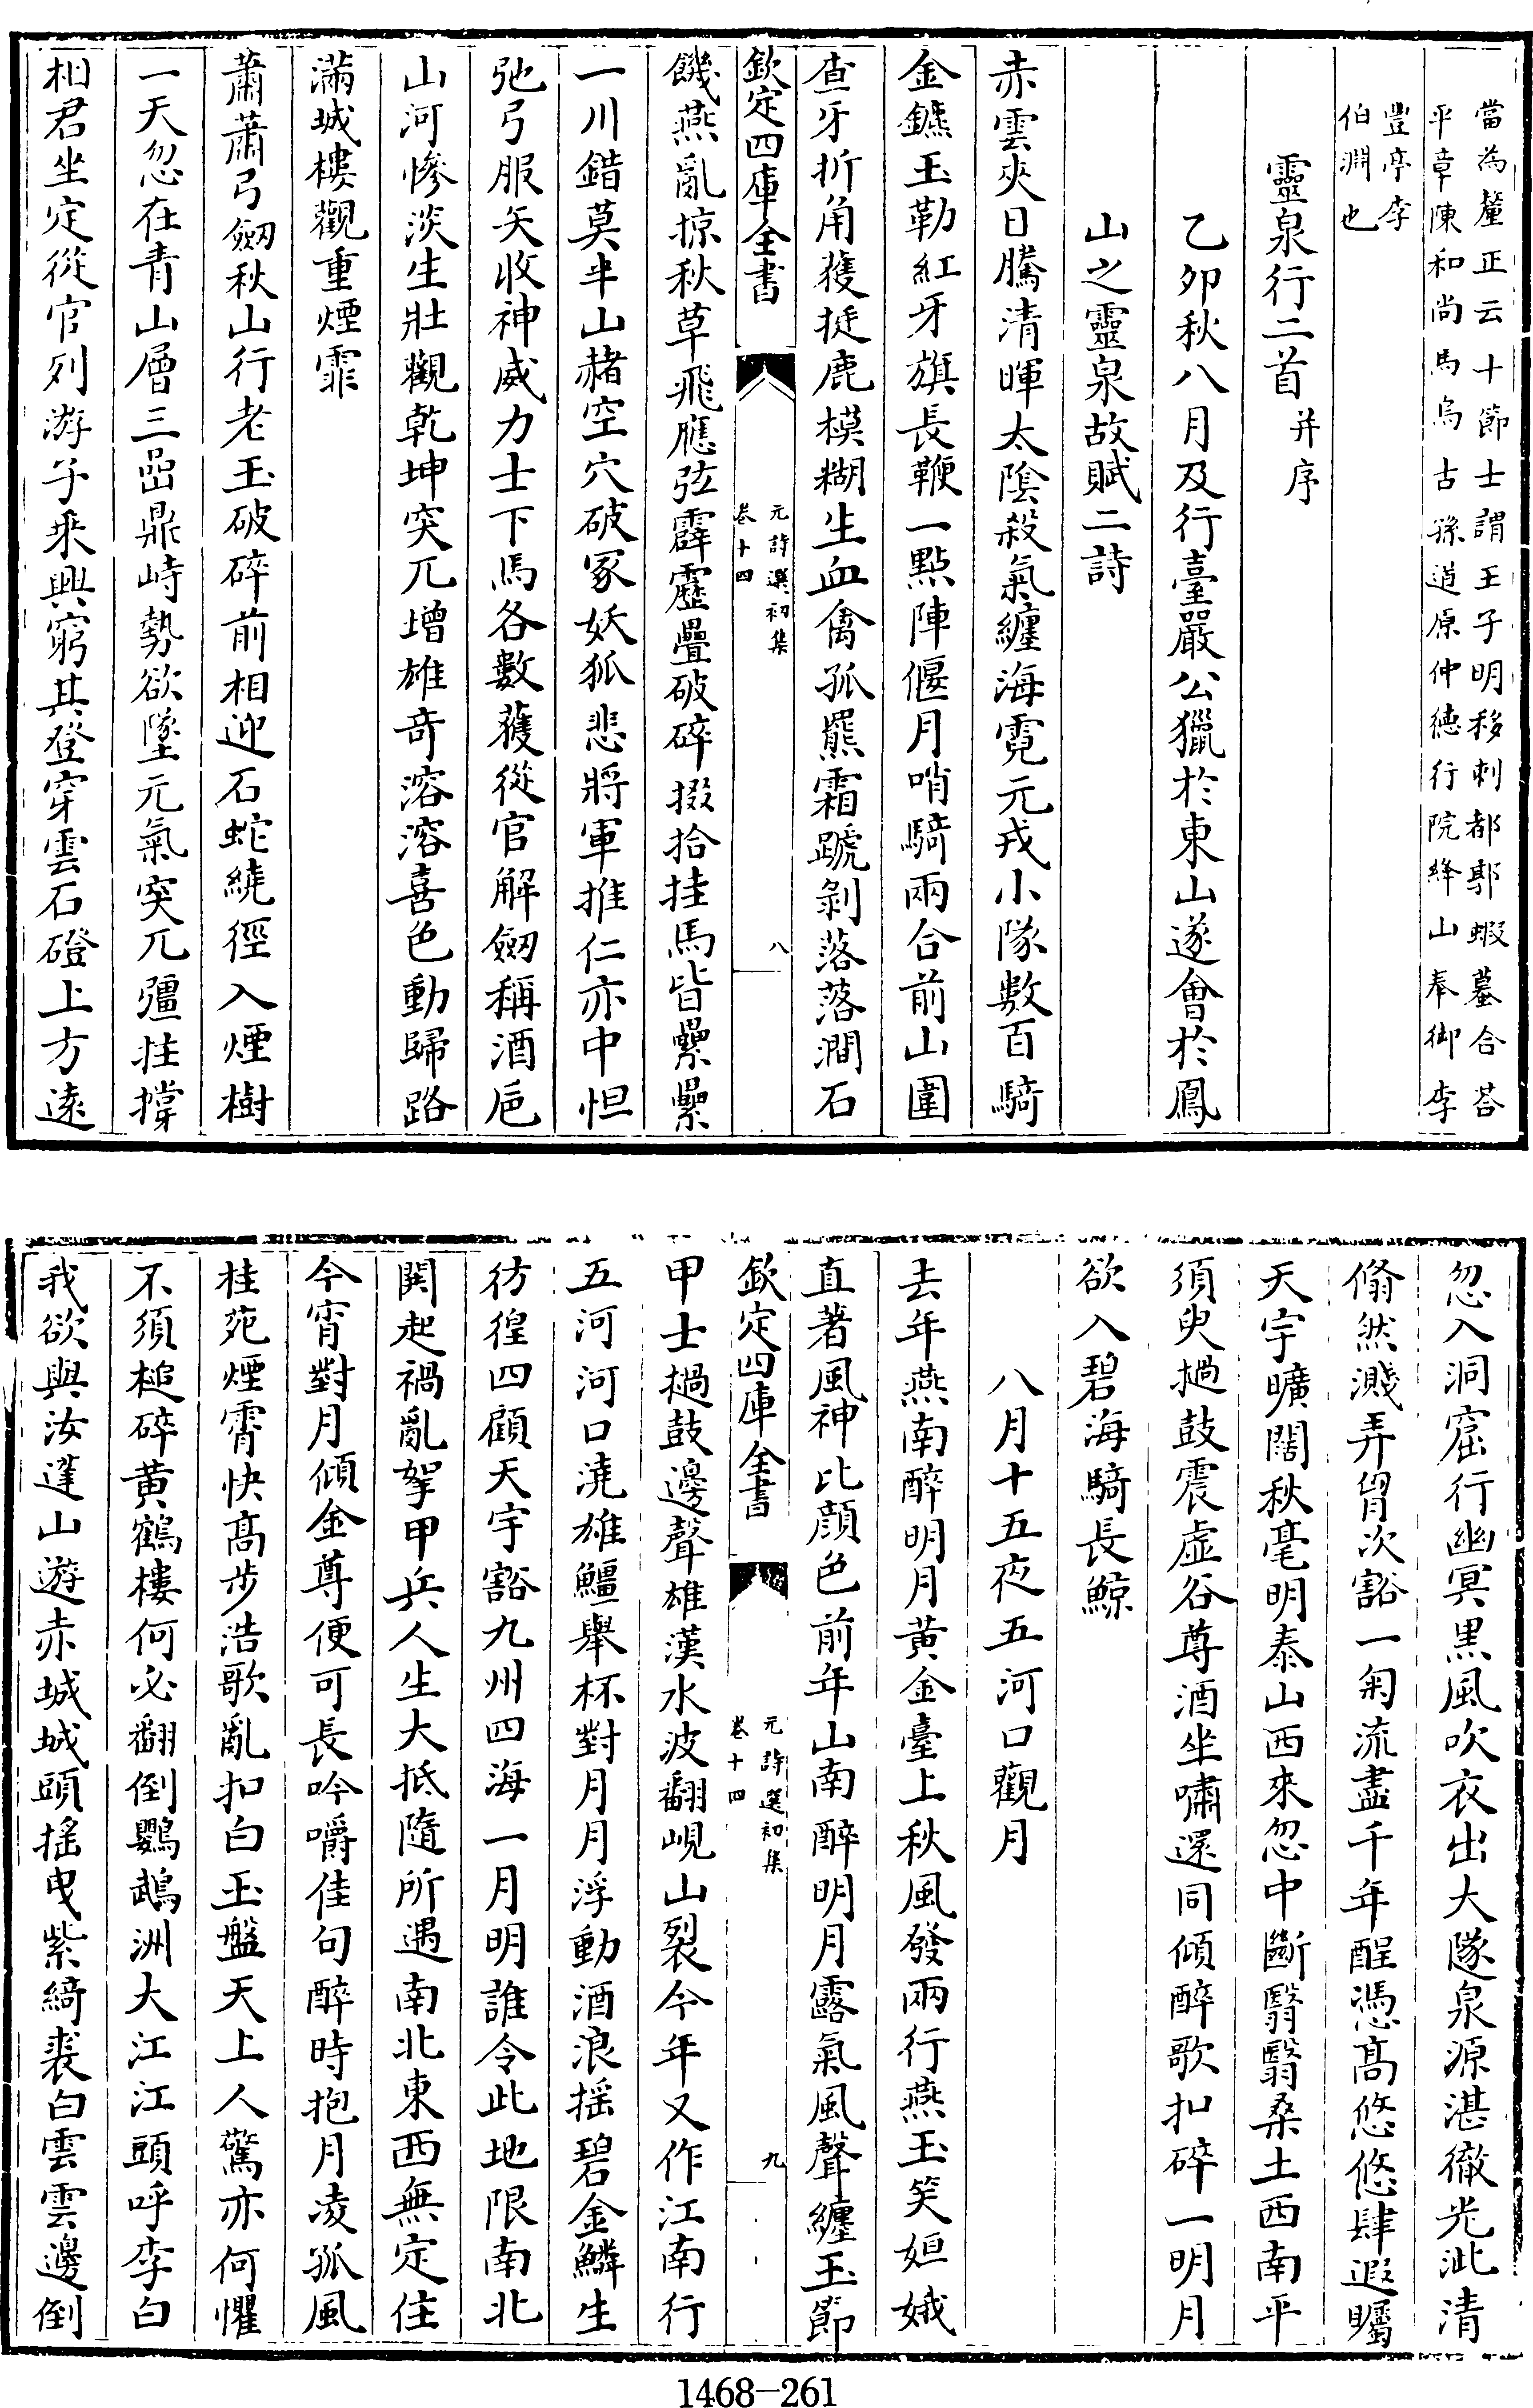 當為釐正云十節士謂王子明移剌都郭蝦蟇合荅
平章陳和尚馬烏古孫道原仲徳行院絳山奉御李
豐亭李
伯淵也
靈泉行二首并序
乙卯秋八月及行臺嚴公獵於東山遂會於鳳
山之靈泉故賦二詩
赤雲夾日騰清暉太隂殺氣纏海霓元戎小隊數百騎
金鑣玉勒紅牙旗長鞭一點陣偃月哨騎兩合前山圍
查牙折角獲挺鹿模糊生血禽孤羆霜蹏剝落落澗石
欽定四庫全書
元詩選初集
卷十四
八
饑燕亂掠秋草飛應弦霹靂疊破碎掇拾挂馬皆纍纍
一川錯莫半山赭空穴破冢妖狐悲將軍推仁亦中怛
弛弓服矢收神威力士下馬各數蒦從官解劒稱酒巵
山河慘淡生壯觀乾坤突兀增雄奇溶溶喜色動歸路
滿城樓觀重煙霏
蕭蕭弓劒秋山行老玉破碎前相迎石蛇繞徑入煙樹
一天忽在青山層三嵒鼎峙勢欲墜元氣突兀彊拄撐
相君坐定從官列游子乘興窮其登穿雲石磴上方逺
忽入洞窟行幽冥黒風吹衣出大隧泉源湛徹光泚清
翛然濺弄胷次豁一匊流盡千年酲憑髙悠悠肆遐矚
天宇曠闊秋毫明泰山西來忽中斷翳翳桑土西南平
須臾撾鼓震虛谷尊酒坐嘯還同傾醉歌扣碎一明月
欲入碧海騎長鯨
八月十五夜五河口觀月
去年燕南醉明月黃金臺上秋風發兩行燕玉笑姮娥
直著風神比顔色前年山南醉明月露氣風聲纏玉節
欽定四庫全書
元詩選初集
卷十四
九
甲士撾鼓邊聲雄漢水波翻峴山裂今年又作江南行
五河河口澆雄鱷舉杯對月月浮動酒浪摇碧金鱗生
彷徨四顧天宇豁九州四海一月明誰令此地限南北
闗起禍亂拏甲兵人生大抵隨所遇南北東西無定住
今宵對月傾金尊便可長吟嚼佳句醉時抱月凌孤風
桂苑煙霄快髙步浩歌亂扣白玉盤天上人驚亦何懼
不須槌碎黃鶴樓何必翻倒鸚鵡洲大江江頭呼李白
我欲與汝蓬山遊赤城城頭摇曳紫綺裘白雲雲邊倒
1468-261